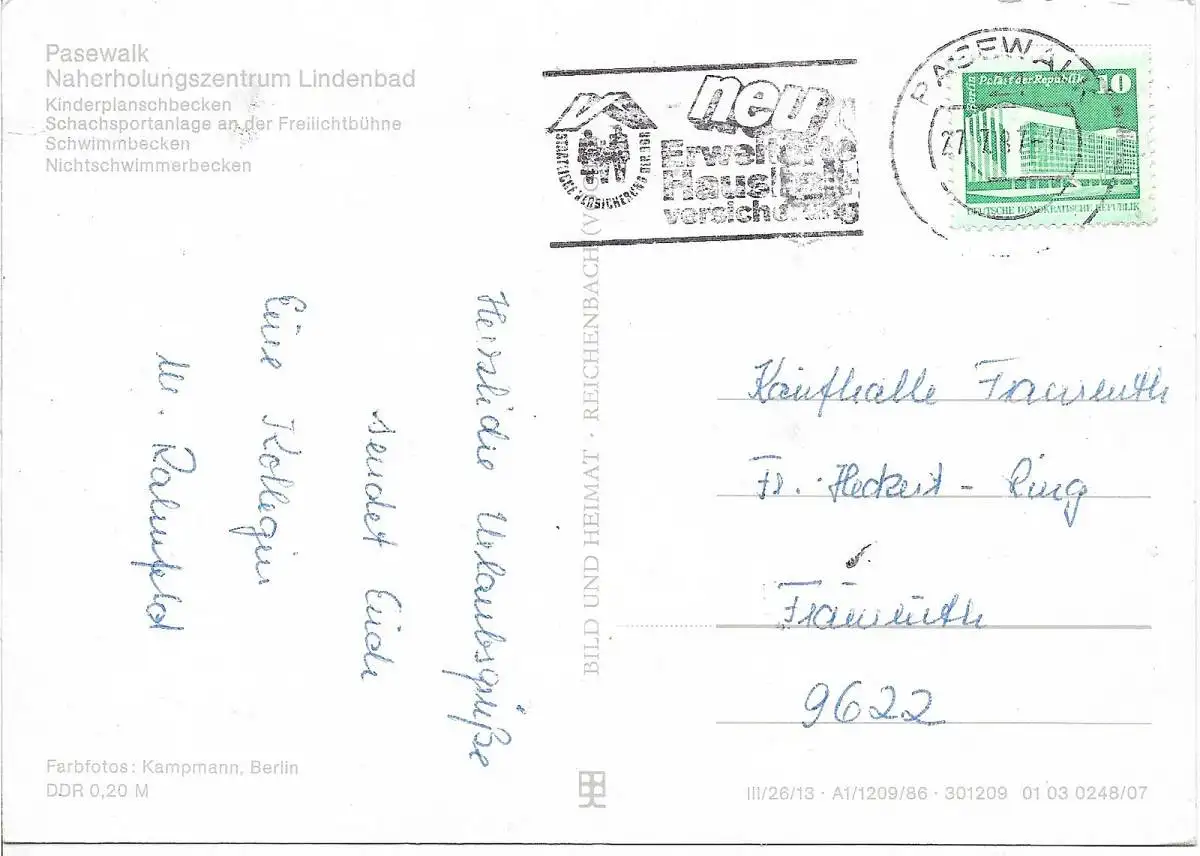 Pasewalk
Naherholungszentrum Lindenbad
Kinderplanschbecken
Schachsportanlage an der Freilichtbühne
Schwimmbecken
Nichtschwimmerbecken
STAATLICHE VERSICHERUNG DER DDR
neu
Erweiterte
Haushalt
versicherung
PASEWALK
Berlin-Palast der Republik
10
DEUTSCHE DEMOKRATISCHE REPUBLIK
Herzliche Urlaubsgrüße
sendet Euch
Eure Kollegin
M.
BILD UND HEIMAT · REICHENBACH (V
Kaufhalle Fraureuth
Fr. Heckert - Ring
Fraureuth
9622
Farbfotos: Kampmann, Berlin
DDR 0,20 M
III/26/13 · A1/1209/86 · 301209 01 03 0248/07